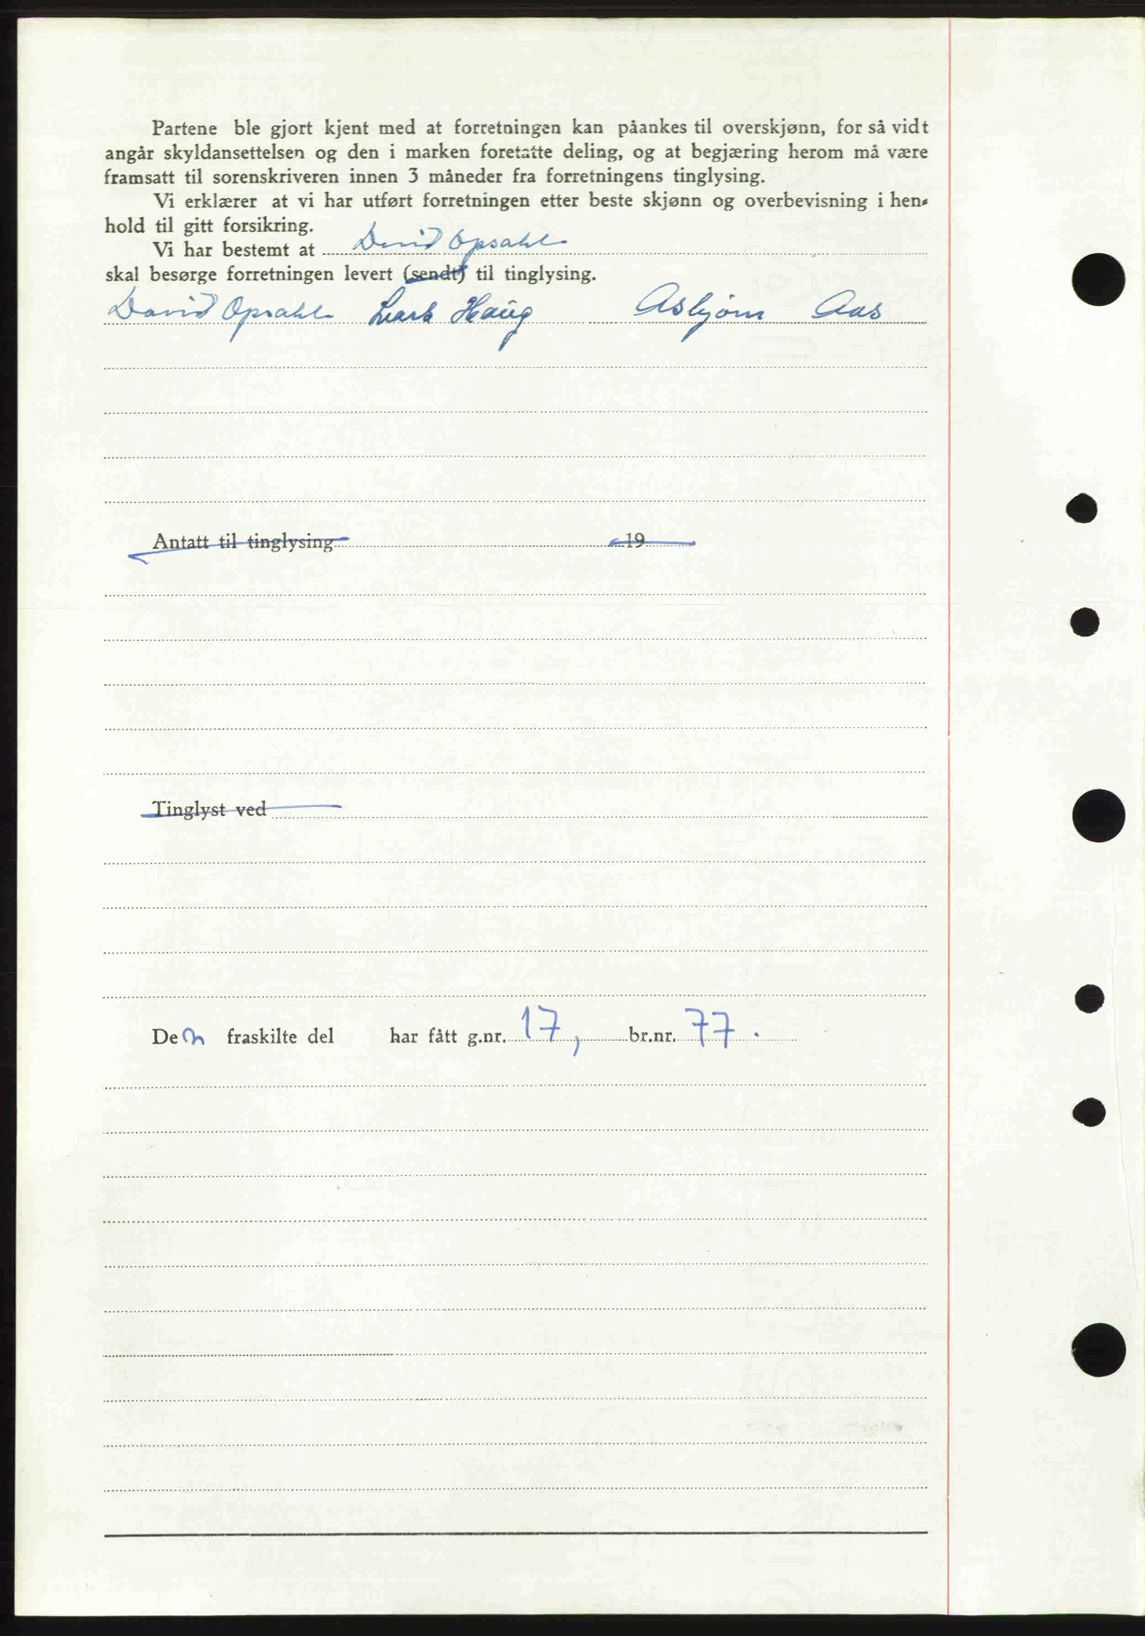 Partene ble gjort kjent med at forretningen kan påankes til overskjønn, for så vidt
angår skyldansettelsen og den i marken foretatte deling, og at begjæring herom må være
framsatt til sorenskriveren innen 3 måneder fra forretningens tinglysing.
Vi erklærer at vi har utført forretningen etter beste skjønn og overbevisning i hen-
hold til gitt forsikring.
Vi har bestemt at David Opsahl
skal besørge forretningen levert (sendt) til tinglysing.
David Opsahl Haug Asbjørn Aas
Antatt til tinglysing 19
Tinglyst ved
Den fraskilte del har fått g.nr. 17, br.nr. 77.